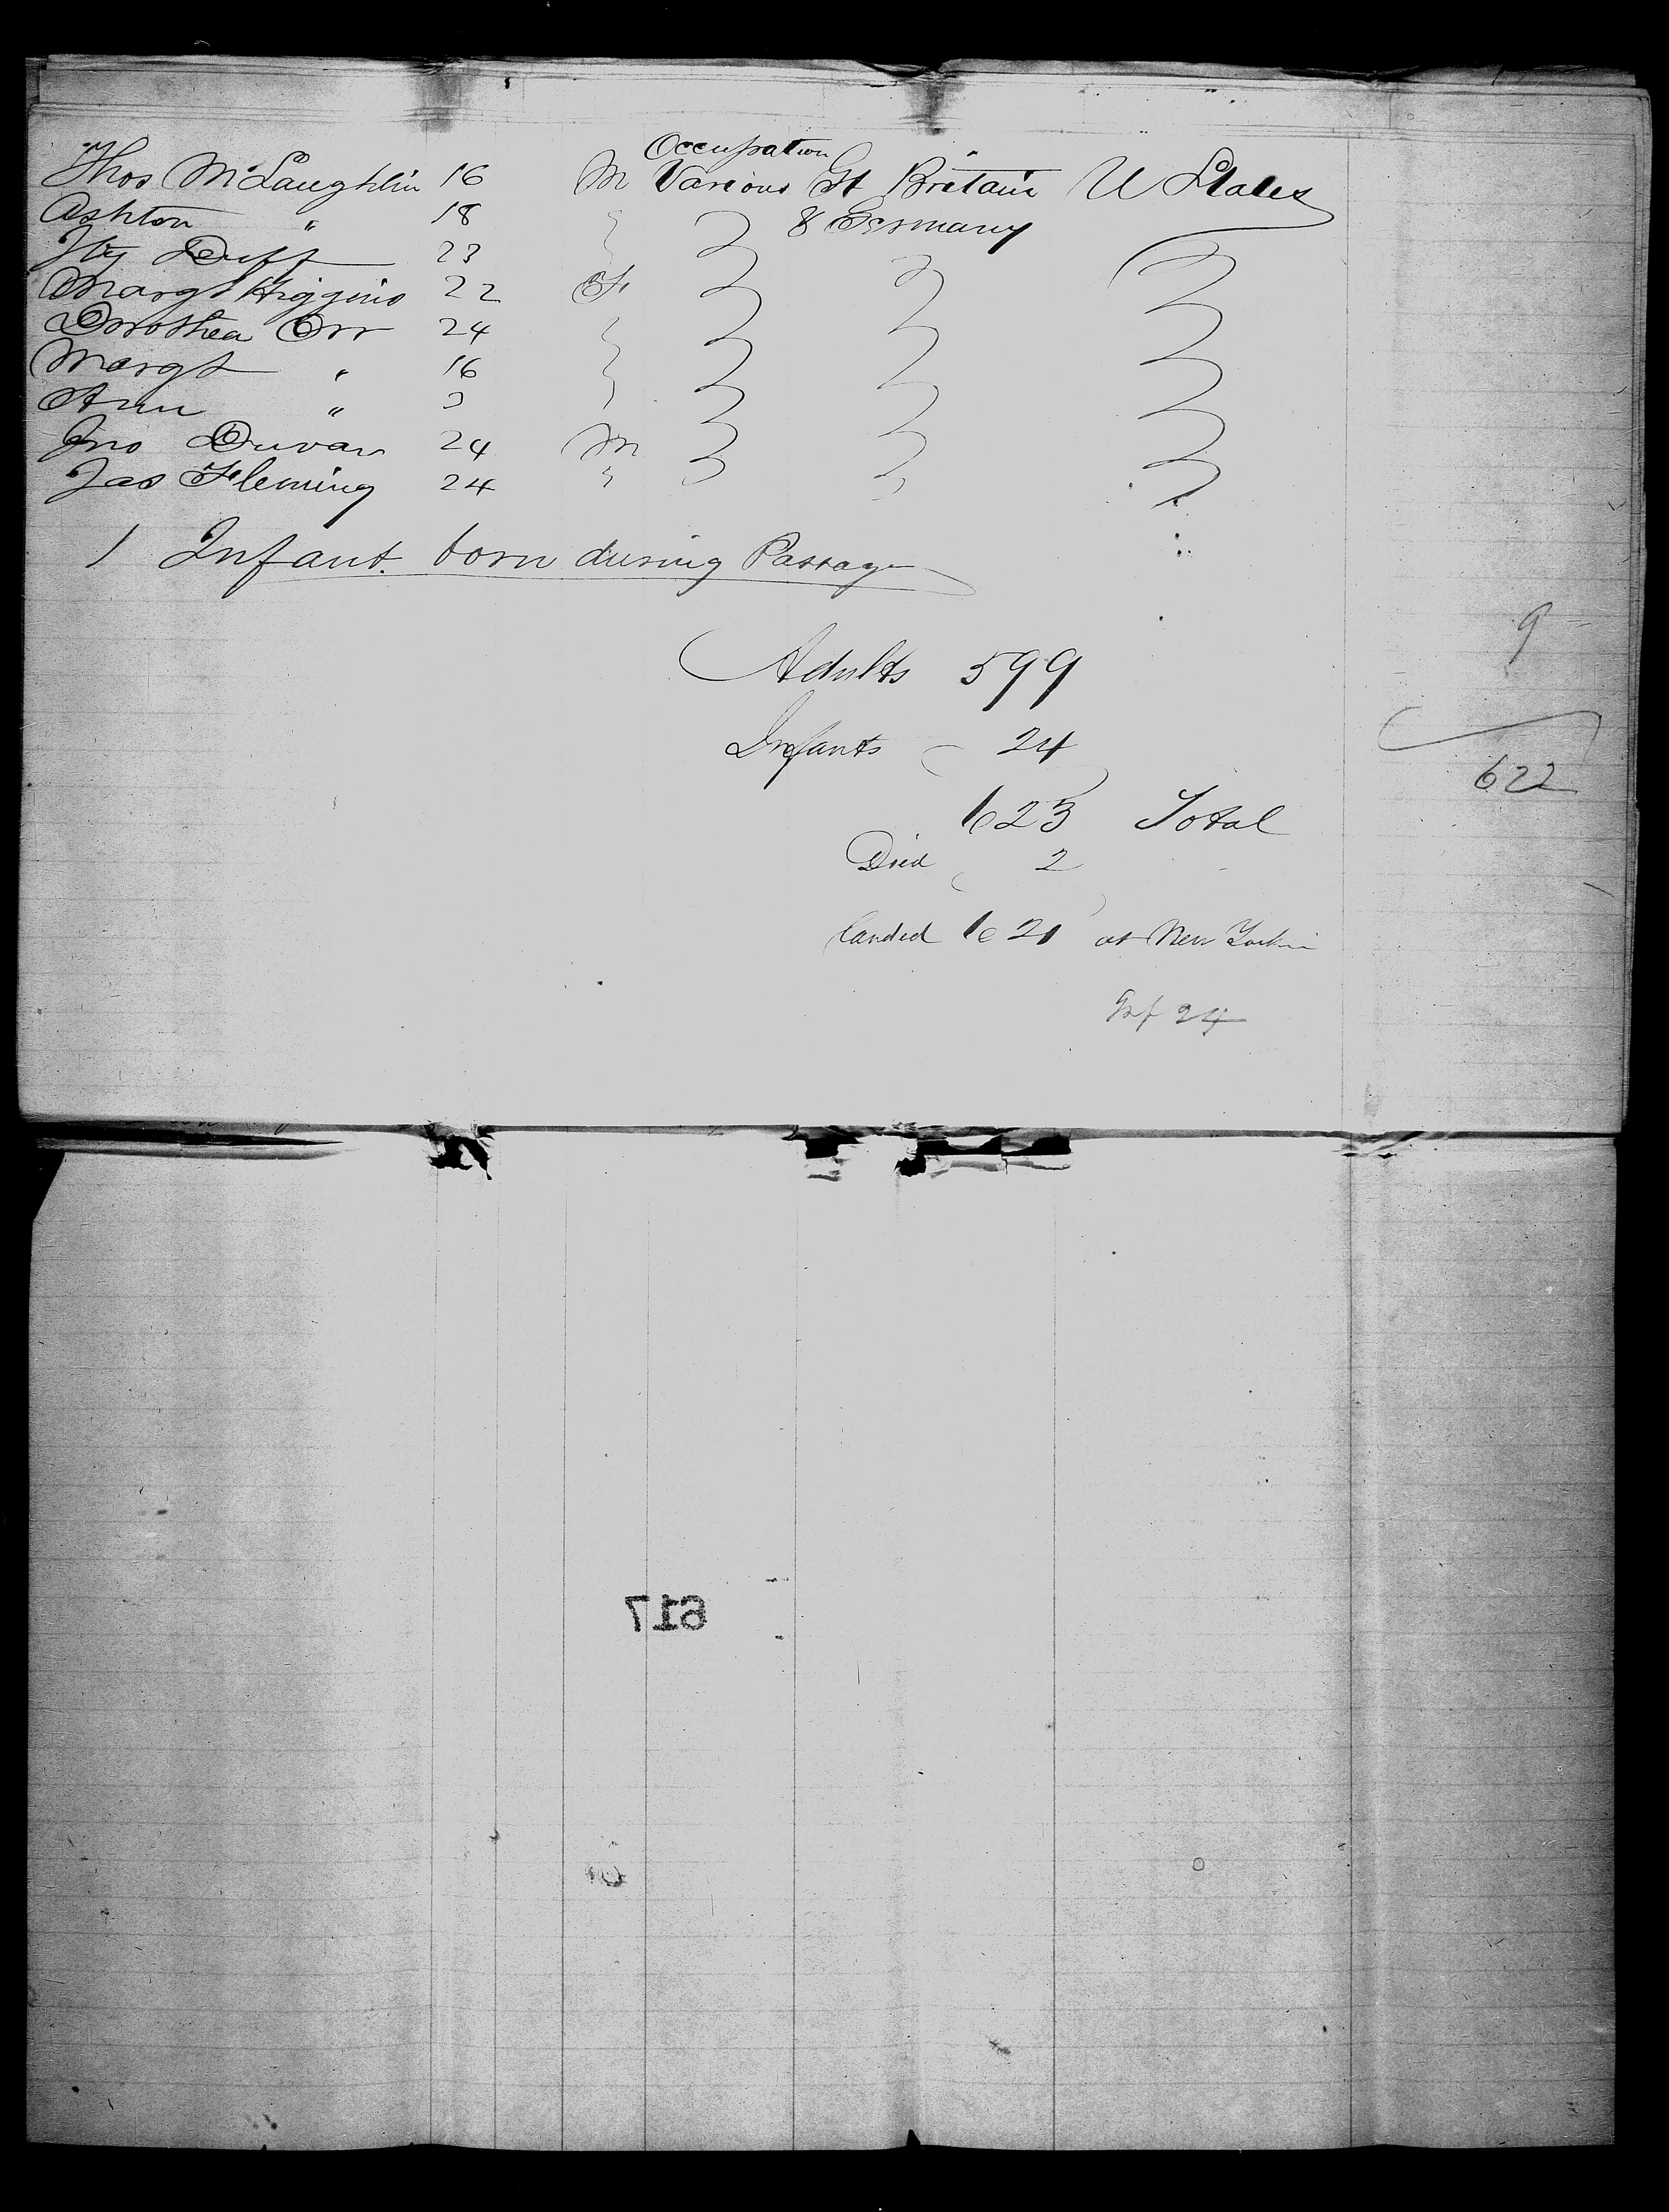 Occupation
Thos McLaughlin 16 M Various Gt Britain U States
Ashton " 18 & Germany
Hy Duff 23
Margt Higgins 22 F
Dorothea Orr 24
Margt " 16
Ann " 3
Jno Duvan 24 M
Jas Fleming 24 "
1 Infant born during Passage
9
Adults 599
Infants 24
622
623 Total
Died 2
Landed 621 at New York
Inf 24
617